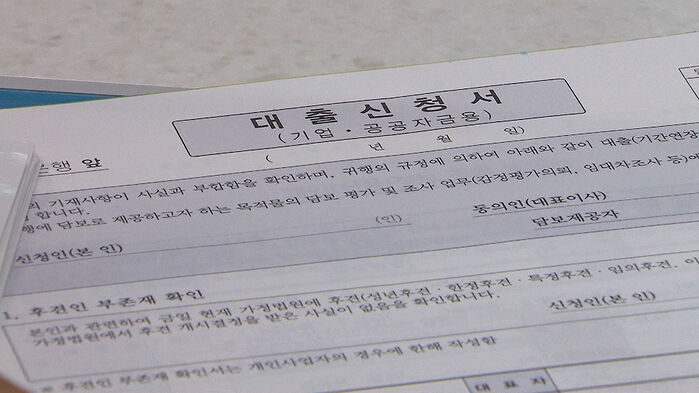 대 출 신 청 서
(기업 · 공공자금용)
( 년 월 일)
은행 앞
의 기재사항이 사실과 부합함을 확인하며, 귀행의 규정에 의하여 아래와 같이 대출(기간연장
합니다.
행에 담보로 제공하고자 하는 목적물의 담보 평가 및 조사 업무(감정평가의뢰, 임대차조사 등)에
신청인(본 인) (인) 동의인(대표이사)
담보제공자
1. 후견인 부존재 확인
본인과 관련하여 금일 현재 가정법원에 후견(성년후견 · 한정후견 · 특정후견 · 임의후견, 이
가정법원에서 후견 개시결정을 받은 사실이 없음을 확인합니다.
신청인(본 인)
※ 후견인 부존재 확인서는 개인사업자의 경우에 한해 작성함
대 표 자